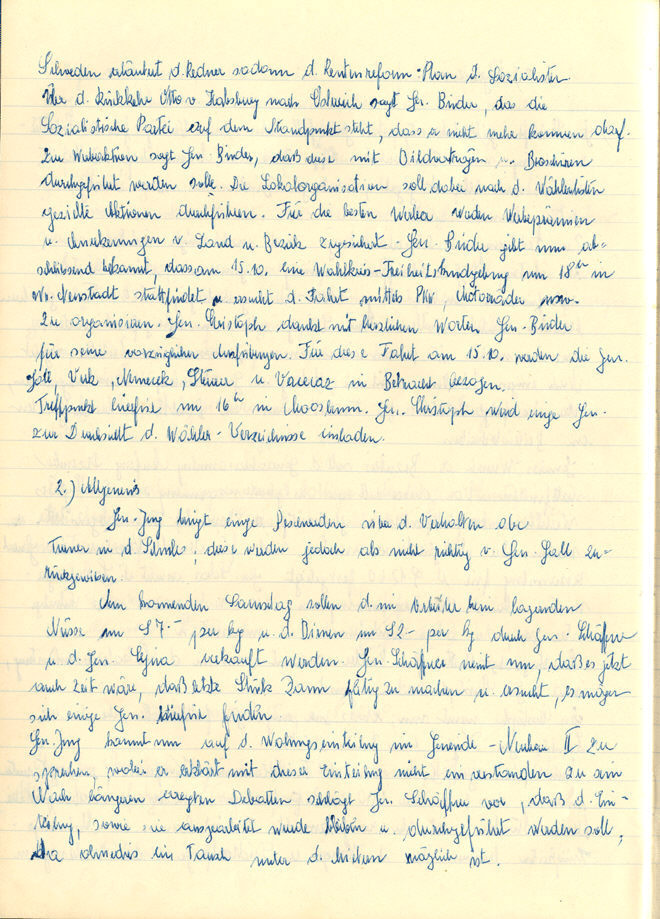 Schweden erläutert d. Redner sodann d. Rentenreform-Plan d. Sozialisten.
Über d. Rückkehr Otto v. Habsburg nach Österreich sagt Gen. Binder, das die
Sozialistische Partei auf dem Standpunkt steht, dass er nicht mehr kommen darf.
Zur Werbeaktion sagt Gen. Binder, daß diese mit Bildvorträgen u. Broschüren
durchgeführt werden solle. Die Lokalorganisation soll dabei nach d. Wählerlisten
gezielte Aktionen durchführen. Für die besten Werber werden Werbeprämien
u. Anerkennungen v. Land u. Bezirk zugesichert. Gen. Binder gibt nun ab-
schliesend bekannt, dass am 15.10. eine Wahlkreis-Freiheitskundgebung um 18 Uhr in
Wr. Neustadt stattfindet u. ersucht d. Fahrt mittels PKW, Motorräder usw.
zu organisieren. Gen. Christoph dankt mit herzlichen Worten Gen. Binder
für seine vorzüglichen Ausführungen. Für diese Fahrt am 15.10. werden die Gen.
Nemecek, Steiner u. in Betracht bezogen.
Treffpunkt hiefür um 16 Uhr in Moosbrunn. Gen. Christoph wird einige Gen.
zur Durchsicht d. Wähler-Verzeichnisse einladen.
2.) Allgemeines
Gen. Jung bringt einige Beschwerden über d. Verhalten
in d. Schule; diese werden jedoch als nicht richtig v. Gen. Gall zu-
rückgewiesen.
Am kommenden Samstag sollen d. im lagernden
Nüsse um S 7.- per kg u. d. Birnen um S 2.- per kg durch Gen. Schäffner
u. d. Gen. verkauft werden. Gen. Schäffner meint nun, daß es jetzt
auch Zeit wäre, daß letzte Stück Zaun fertig zu machen u. ersucht, es mögen
sich einige Gen. hiefür finden.
Gen. Jung kommt nun auf d. Wohnungseinteilung im Gemeinde-Neubau II zu
sprechen, wobei er erklärt mit dieser Einteilung nicht einverstanden zu sein.
Nach längeren erregten Debatten schlägt Gen. Schäffner vor, daß d. Ein-
teilung, sowie sie ausgearbeitet wurde bleiben u. durchgeführt werden soll,
da ohnedies ein Tausch unter d. Mietern möglich ist.